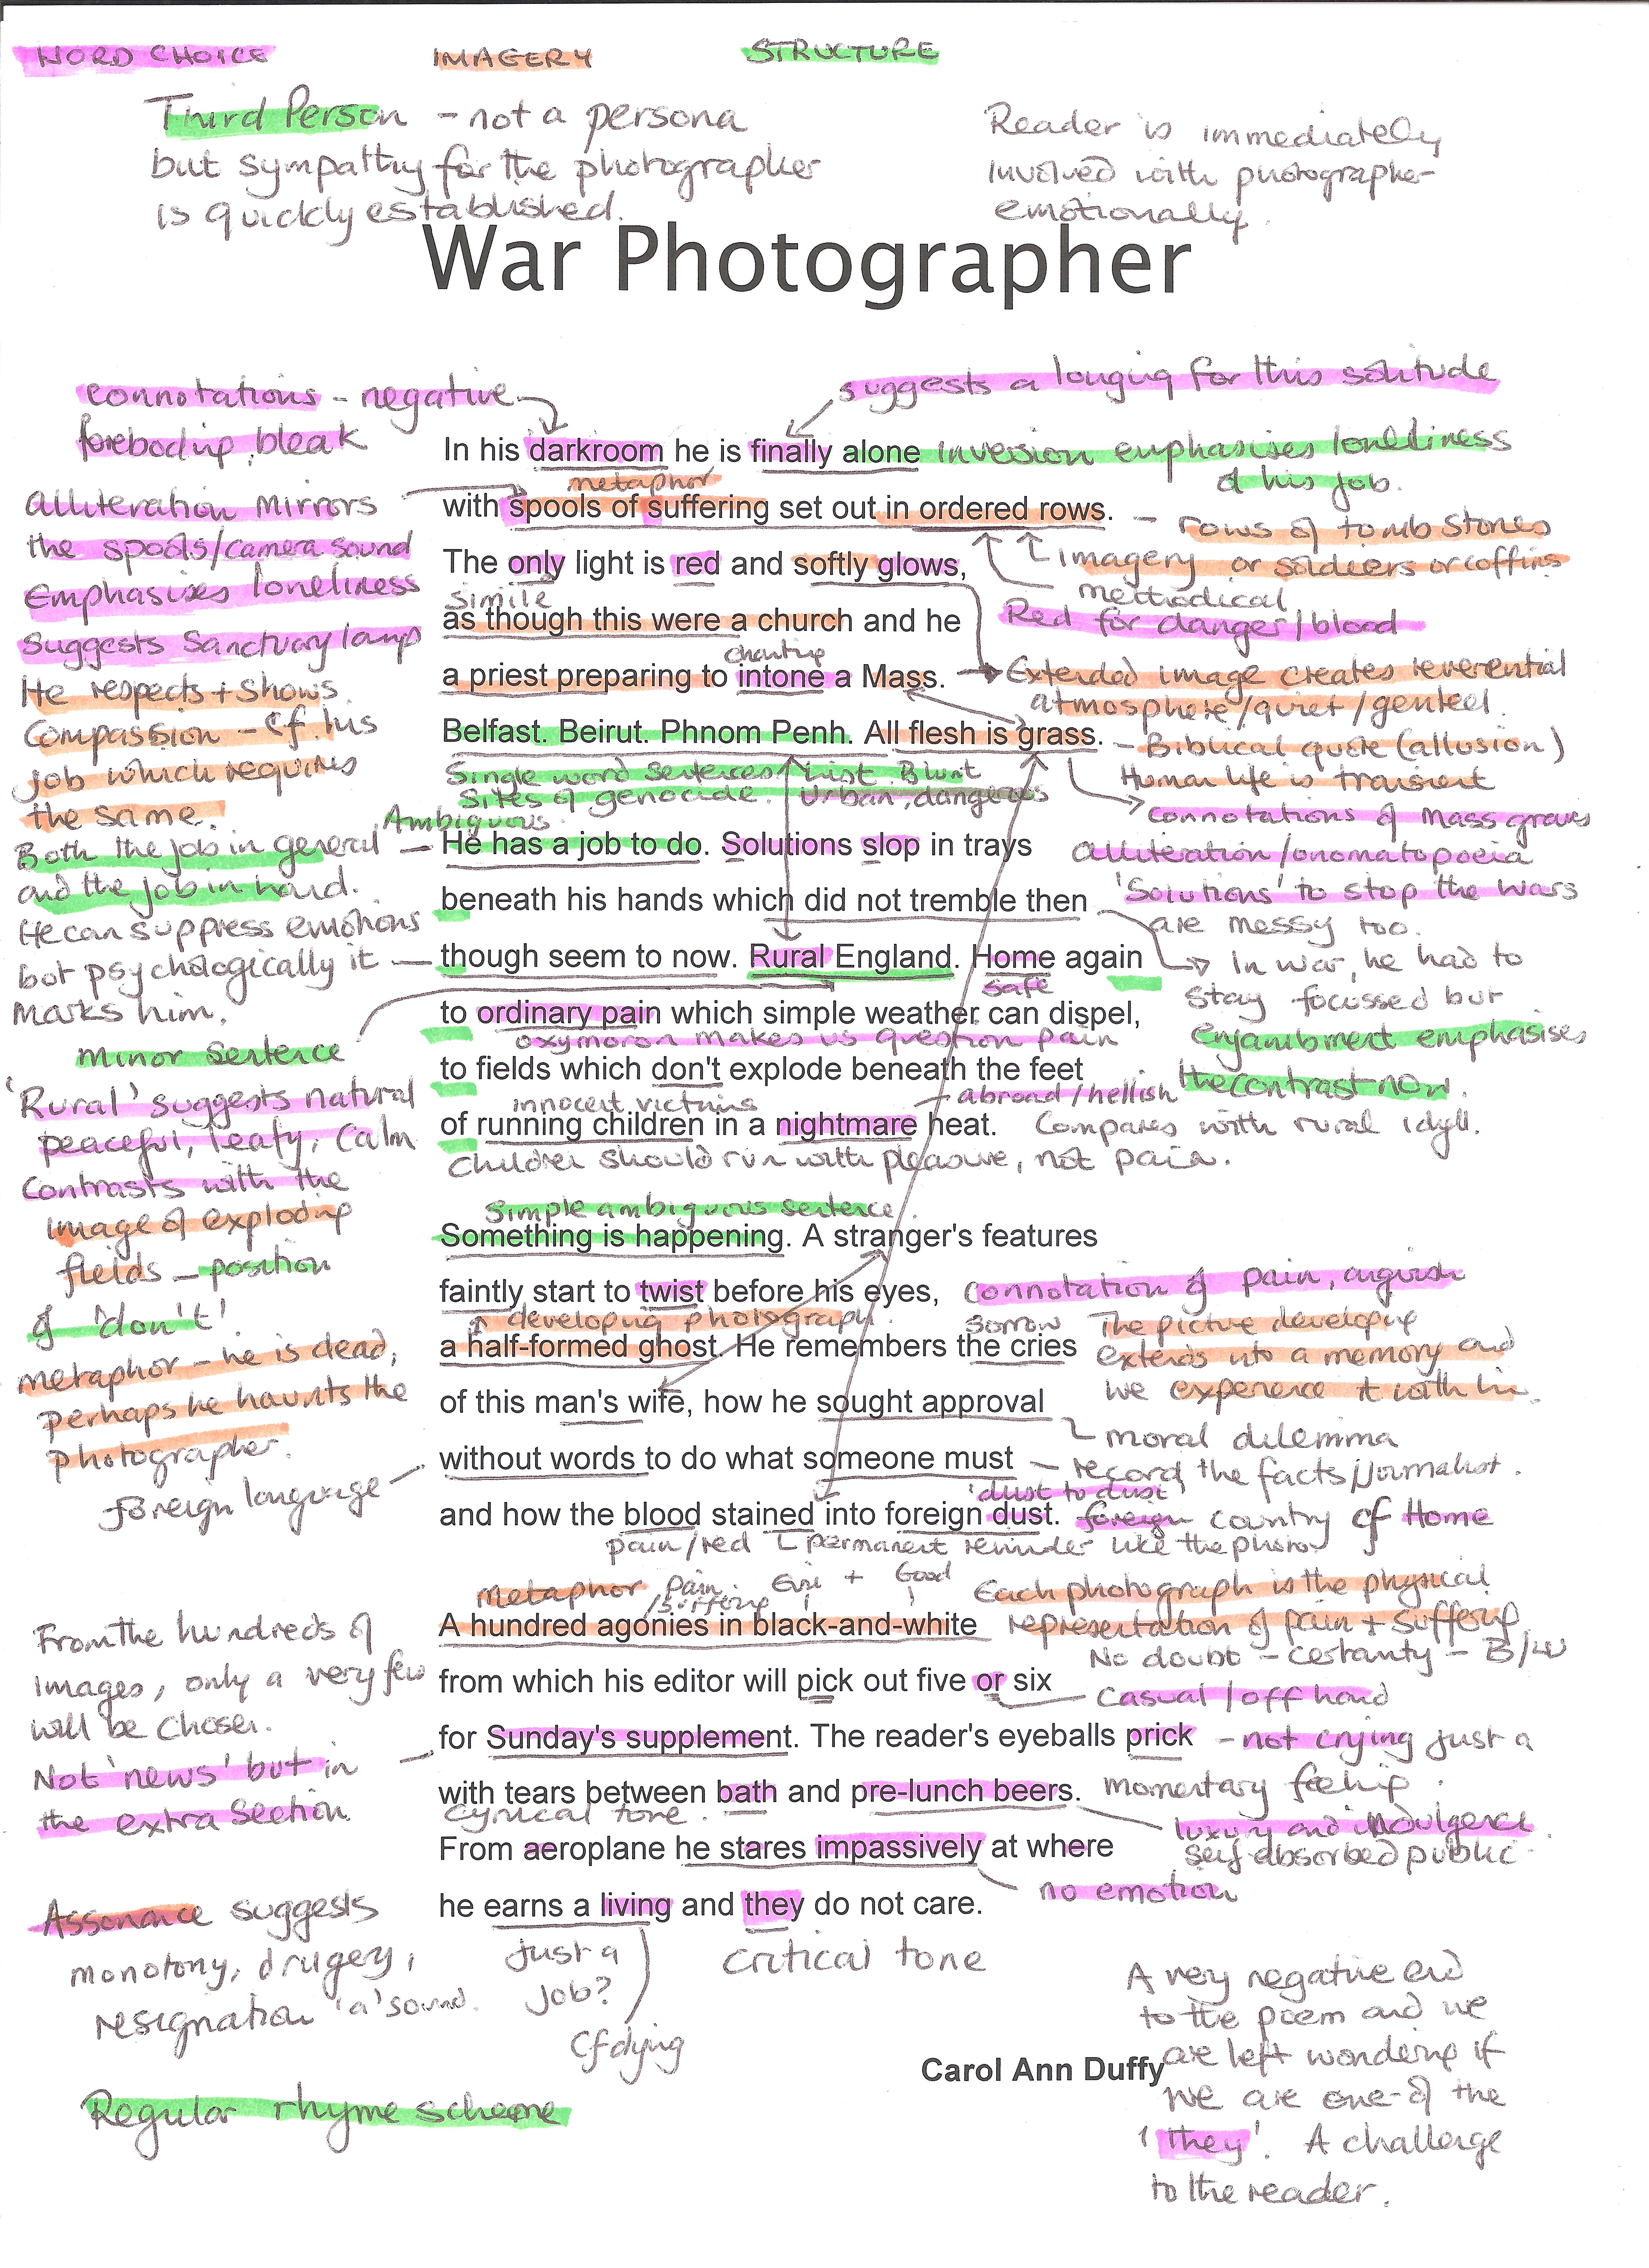 WORD CHOICE
IMAGERY
STRUCTURE
Third Person - not a persona
but sympathy for the photographer
is quickly established.
Reader is immediately
involved with photographer
emotionally.
War Photographer
connotations - negative
foreboding, bleak
suggests a longing for this solitude
In his darkroom he is finally alone
inversion emphasises loneliness
of his job.
metaphor
with spools of suffering set out in ordered rows.
- rows of tomb stones
or soldiers or coffins
imagery
methodical
Alliteration mirrors
the spools/camera sound
Emphasises loneliness
Suggests Sanctuary lamp
The only light is red and softly glows,
Red for danger/blood
Simile
as though this were a church and he
chanting
a priest preparing to intone a Mass.
Extended image creates reverential
atmosphere/quiet/genteel.
He respects + shows
Compassion - cf. his
job which requires
the same.
Belfast. Beirut. Phnom Penh. All flesh is grass.
- Biblical quote (allusion)
Human life is transient
connotations of Mass graves
Single word sentences
List. Blunt
Sites of genocide.
Urban, dangerous
Ambiguous.
Both the job in general
and the job in hand.
He has a job to do. Solutions slop in trays
alliteration/onomatopoeia
'Solutions' to stop the wars
are messy too.
beneath his hands which did not tremble then
In war, he had to
stay focussed but
enjambment emphasises
the contrast now.
He can suppress emotions
but psychologically it
marks him.
though seem to now. Rural England. Home again
safe
minor sentence
to ordinary pain which simple weather can dispel,
oxymoron makes us question pain
'Rural' suggests natural
peaceful, leafy, calm
Contrasts with the
image of exploding
fields - position
of 'don't'
to fields which don't explode beneath the feet
innocent victims
- abroad/hellish
of running children in a nightmare heat.
Compares with rural idyll.
Children should run with pleasure, not pain.
Simple ambiguous sentence.
Something is happening. A stranger's features
faintly start to twist before his eyes,
connotation of pain, anguish
developing photograph.
sorrow
The picture developing
extends into a memory and
we experience it with him.
metaphor - he is dead,
perhaps he haunts the
photographer.
a half-formed ghost. He remembers the cries
of this man's wife, how he sought approval
moral dilemma
without words to do what someone must
- record the facts/journalist.
foreign language
'dust to dust'
and how the blood stained into foreign dust.
foreign country cf Home
pain/red
permanent reminder like the photo
Metaphor
Pain
/suffering
Evil + Good
A hundred agonies in black-and-white
Each photograph is the physical
representation of pain + suffering
No doubt - certainty - B/W
from which his editor will pick out five or six
casual/off hand
From the hundreds of
images, only a very few
will be chosen.
Not 'news' but in
the extra section.
for Sunday's supplement. The reader's eyeballs prick
- not crying just a
momentary feeling.
with tears between bath and pre-lunch beers.
cynical tone.
luxury and indulgence.
self-absorbed public
From aeroplane he stares impassively at where
no emotion
he earns a living and they do not care.
Assonance suggests
monotony, drugery,
resignation 'a' sound.
Just a
job?
cf dying
critical tone
A very negative end
to the poem and we
are left wondering if
we are one of the
'they'. A challenge
to the reader.
Carol Ann Duffy
Regular rhyme scheme